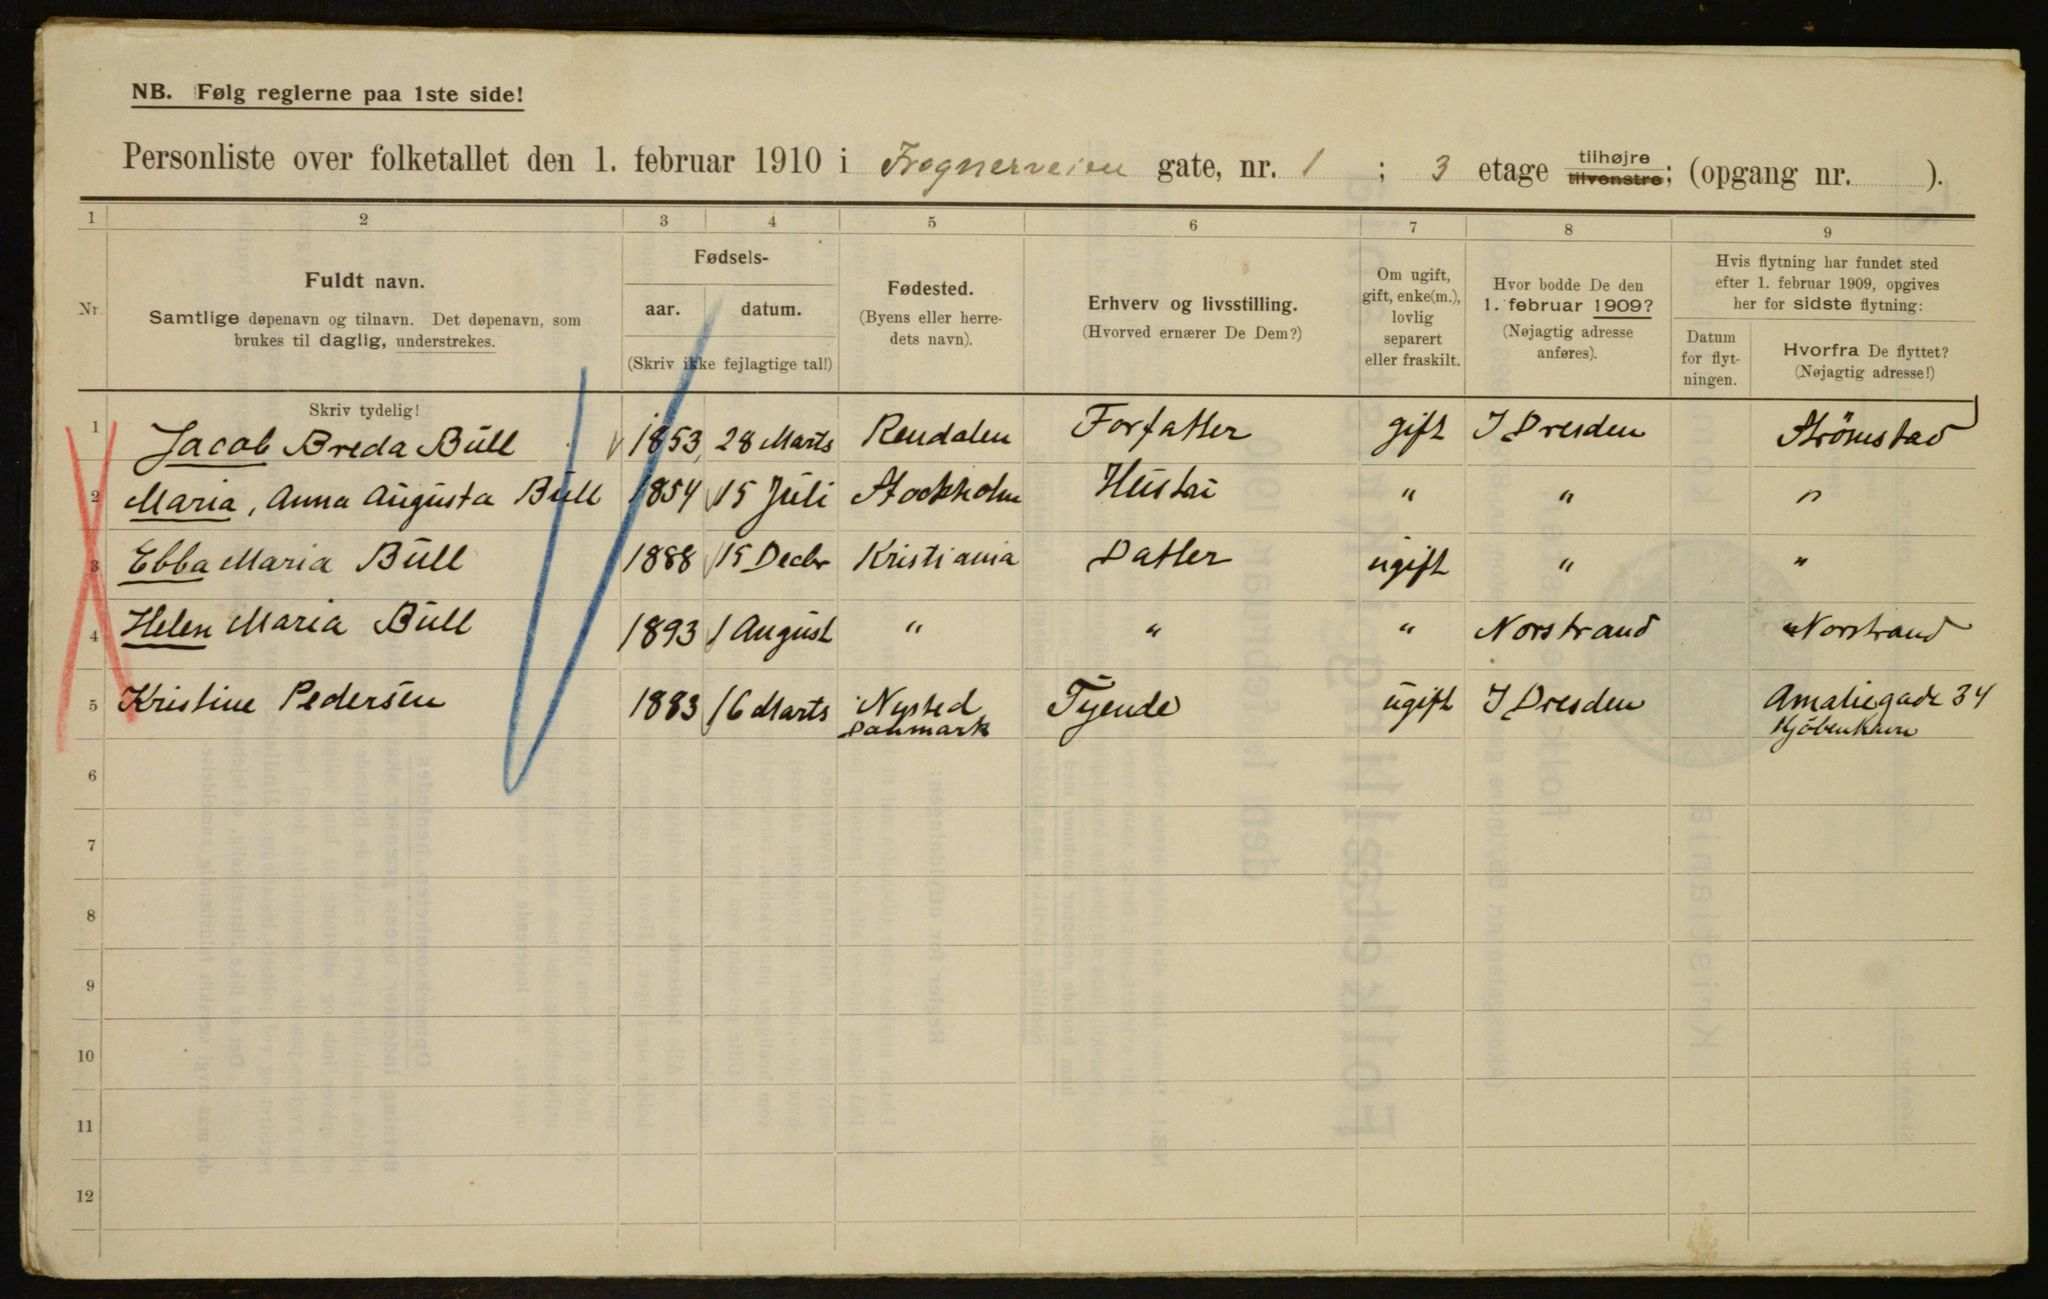 NB. Følg reglerne paa 1ste side!
Personliste over folketallet den 1. februar 1910 i Frognerveien gate, nr. 1 ; 3 etage tilhøjre tilvenstre; (opgang nr. ).
1 2 3 4 5 6 7 8 9
Nr.
Fuldt navn.
Samtlige døpenavn og tilnavn. Det døpenavn, som
brukes til daglig, understrekes.
Skriv tydelig!
Fødsels-
aar. datum.
(Skriv ikke fejlagtige tal!)
Fødested.
(Byens eller herre-
dets navn).
Erhverv og livsstilling.
(Hvorved ernærer De Dem?)
Om ugift,
gift, enke(m.),
lovlig
separert
eller fraskilt.
Hvor bodde De den
1. februar 1909?
(Nøjagtig adresse
anføres).
Hvis flytning har fundet sted
efter 1. februar 1909, opgives
her for sidste flytning:
Datum
for flyt-
ningen.
Hvorfra De flyttet?
(Nøjagtig adresse!)
1 Jacob Breda Bull 1853, 28 Marts Rendalen Forfatter gift I Dresden Strömstad
2 Maria, Anna Augusta Bull 1854 15 Juli Stockholm Hustru " " "
3 Ebba Maria Bull 1888 15 Decbr Kristiania Datter ugift " "
4 Helen Maria Bull 1893 1 August " " " Norstrand Norstrand
5 Kristine Pedersen 1883 16 Marts Nysted Tyende ugift I Dresden Amaliegade 34
Danmark Kjöbenhavn
6
7
8
9
10
11
12